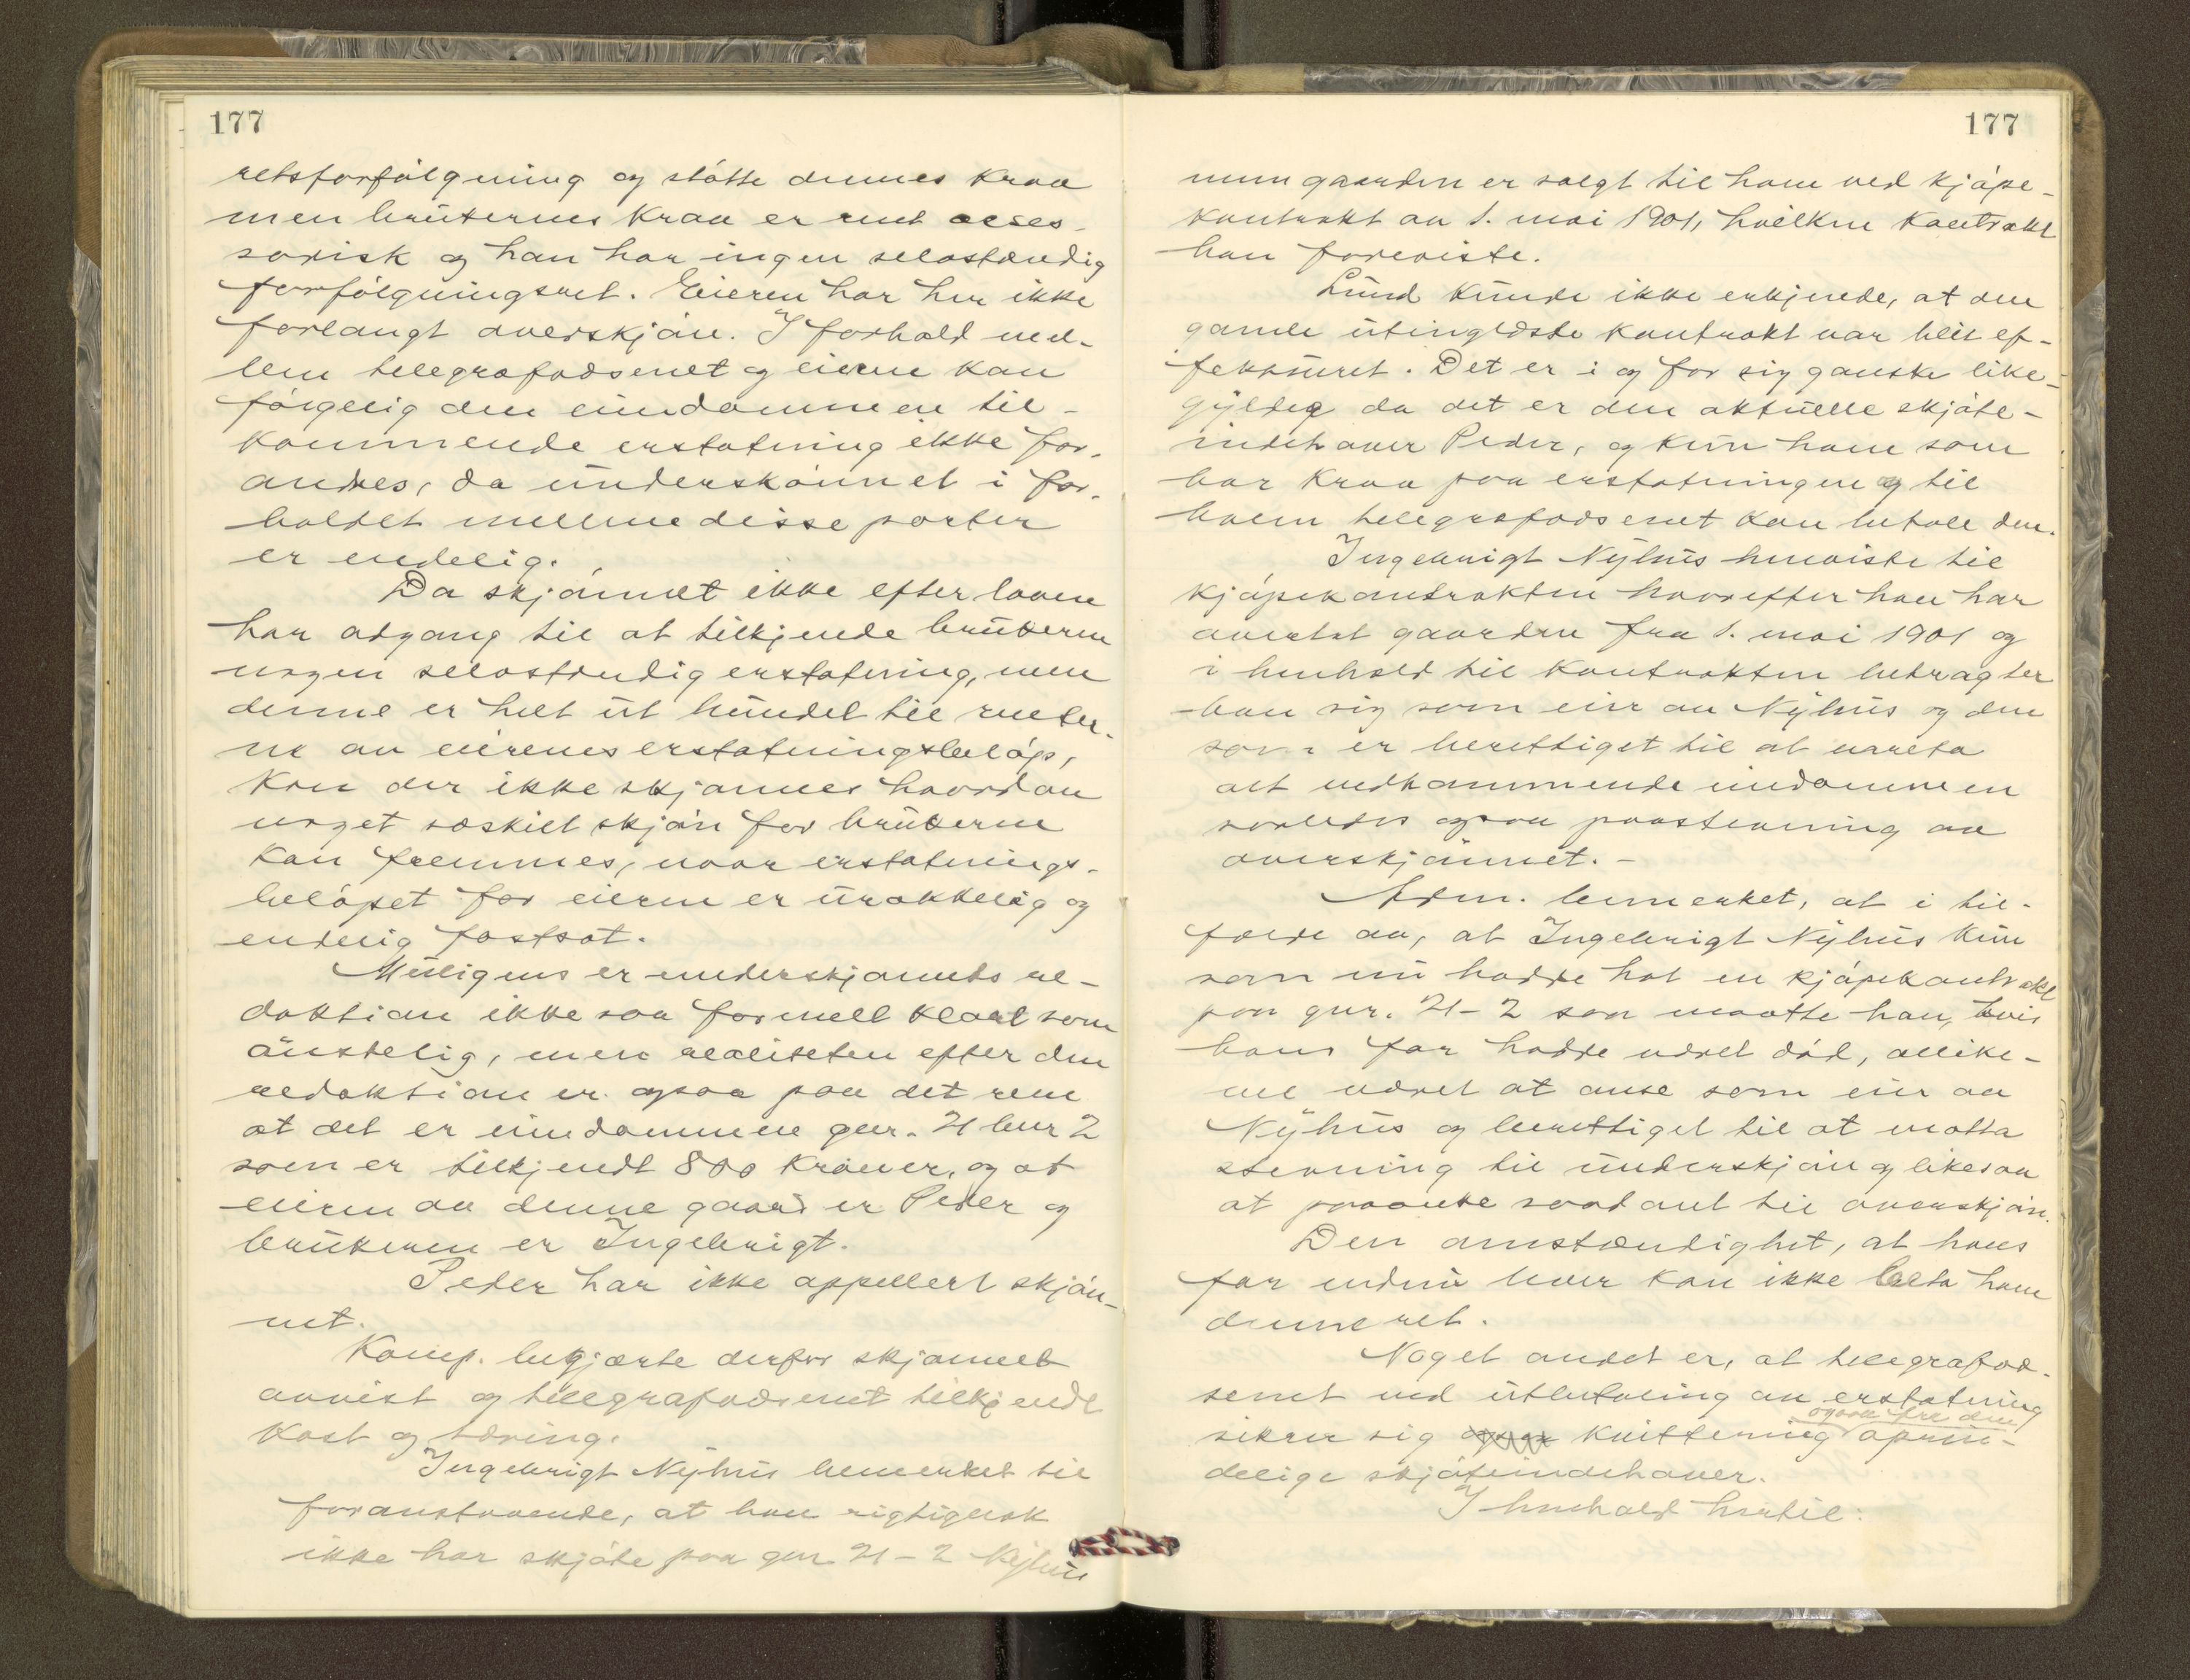 177
retsforfölgning og stötte dennes krav
men brukernes krav er rent acces-
sorisk og han har ingen selvstændig
forfölgningsret. Eieren har her ikke
forlangt overskjön. I forhold mel-
lem telegrafvæsenet og eieren kan
fölgelig den eiendommen til-
kommende erstatning ikke for-
andres, da underskönnet i for-
holdet mellem disse parter
er endelig.
Da skjönnet ikke efter loven
har adgang til at tilkjende brukeren
nogen selvstændig erstatning, men
denne er helt ut bundet til renter-
ne av eierens erstatningsbelöp,
kan der ikke skjönnes hvordan
noget særskilt skjön for brukeren
kan fremmes, naar erstatnings-
belöpet for eieren er urokkelig og
endelig fastsat.
Muligens er underskjönnets re-
daktion ikke saa formell klart som
önskelig, men realiteten efter den
redaktion er ogsaa paa det rene
at det er eiendommen gnr. 21 bnr 2
som er tilkjendt 800 kroner, og at
eieren av denne gaard er Peder og
brukeren er Ingebrigt.
Peder har ikke appellert skjön-
net.
Komp. begjærte derfor skjönnet
avvist og telegrafvæsenet tilkjendt
kost og tæring.
Ingebrigt Nyhus bemerket til
foranstaaende, at han rigtignok
ikke har skjöte paa gnr 21-2 Nyhus
177
men gaarden er solgt til ham ved kjöpe-
kontrakt av 1. mai 1901, hvilken kontrakt
han foreviste.
Lund kunde ikke erkjende, at den
gamle utinglæste kontrakt var blit ef-
fektueret. Det er i og for sig ganske like-
gyldig da det er den aktuelle skjöte-
indehaver Peder, og kun ham som
har krav paa erstatningen og til
hvem telegrafvæsenet kan betale den.
Ingebrigt Nyhus henviste til
kjöpekontrakten hvorefter han har
overtat gaarden fra 1. mai 1901 og
i henhold til kontrakten betragter
han sig som eier av Nyhus og den
som er berettiget til at vareta
alt vedkommende eiendommen
saaledes ogsaa paastevning av
overskjönnet. -
Adm. bemerket, at i til-
fælde av, at Ingebrigt Nyhus kun
som nu hadde hat en kjöpekontrakt
paa gnr. 21-2 saa maatte han, hvis
hans far hadde været död, allike-
vel været at anse som eier av
Nyhus og berettiget til at motta
stevning til underskjön og likesaa
at paaanke saadant til overskjön.
Den omstændighet, at hans
far endnu lever kan ikke beta ham
denne ret.
Noget andet er, at telegrafvæ-
senet ved utbetaling av erstatning
sikrer sig kvittering ogsaa fra den oprin-
delige skjöteindehaver.
I henhold hertil: